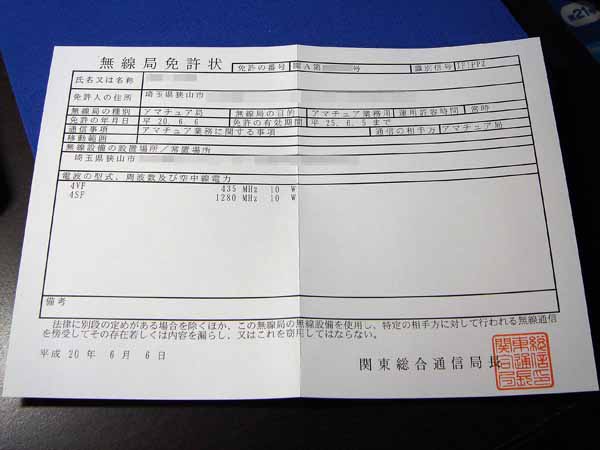 無線局免許状
免許の番号 関A第 号 識別信号 JF1PPZ
氏名又は名称
免許人の住所 埼玉県狭山市
無線局の種別 アマチュア局 無線局の目的 アマチュア業務用 運用許容時間 常時
免許の年月日 平20.6.6 免許の有効期間 平25.6.5まで
通信事項 アマチュア業務に関する事項 通信の相手方 アマチュア局
移動範囲
無線設備の設置場所/常置場所
埼玉県狭山市
電波の型式、周波数及び空中線電力
4VF 435 MHz 10 W
4SF 1280 MHz 10 W
備考
法律に別段の定めがある場合を除くほか、この無線局の無線設備を使用し、特定の相手方に対して行われる無線通信
を傍受してその存在若しくは内容を漏らし、又はこれを窃用してはならない。
平成 20年 6月 6日
関東総合通信局長
第21